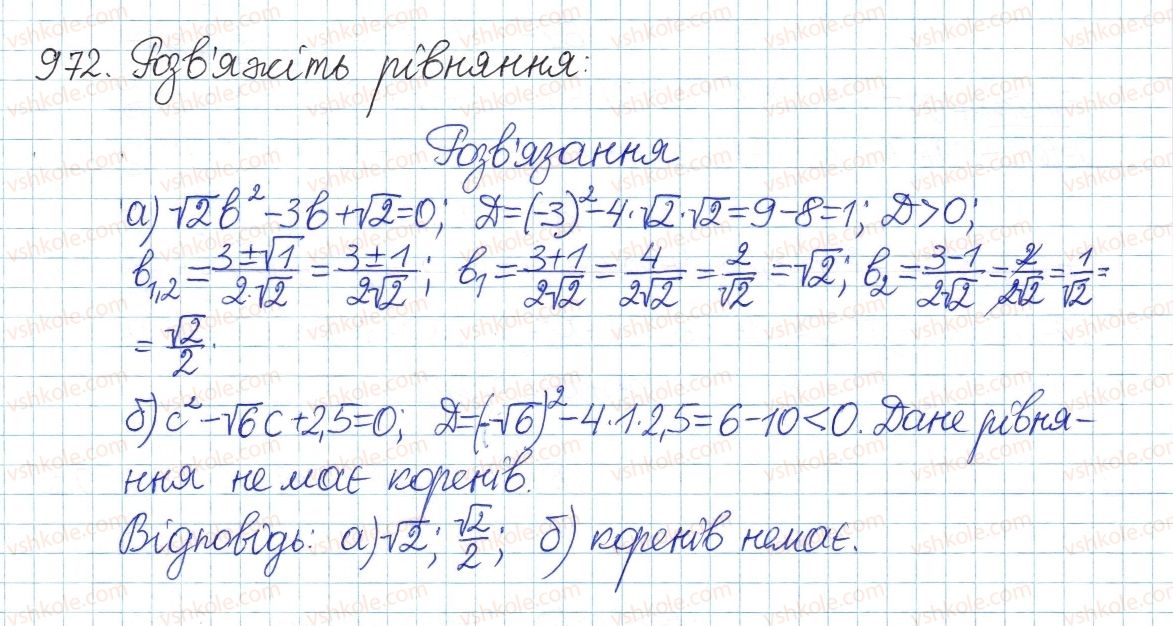 972. Розв'яжіть рівняння:
Розв'язання
а) √2b² - 3b + √2 = 0; D = (-3)² - 4·√2·√2 = 9 - 8 = 1; D > 0;
b₁,₂ = (3±√1)/(2·√2) = (3±1)/(2√2); b₁ = (3+1)/(2√2) = 4/(2√2) = 2/√2 = √2; b₂ = (3-1)/(2√2) = 2/(2√2) = 1/√2 =
= √2/2.
б) c² - √6c + 2,5 = 0; D = (-√6)² - 4·1·2,5 = 6 - 10 < 0. Дане рівня-
ння не має коренів.
Відповідь: а) √2; √2/2; б) коренів немає.